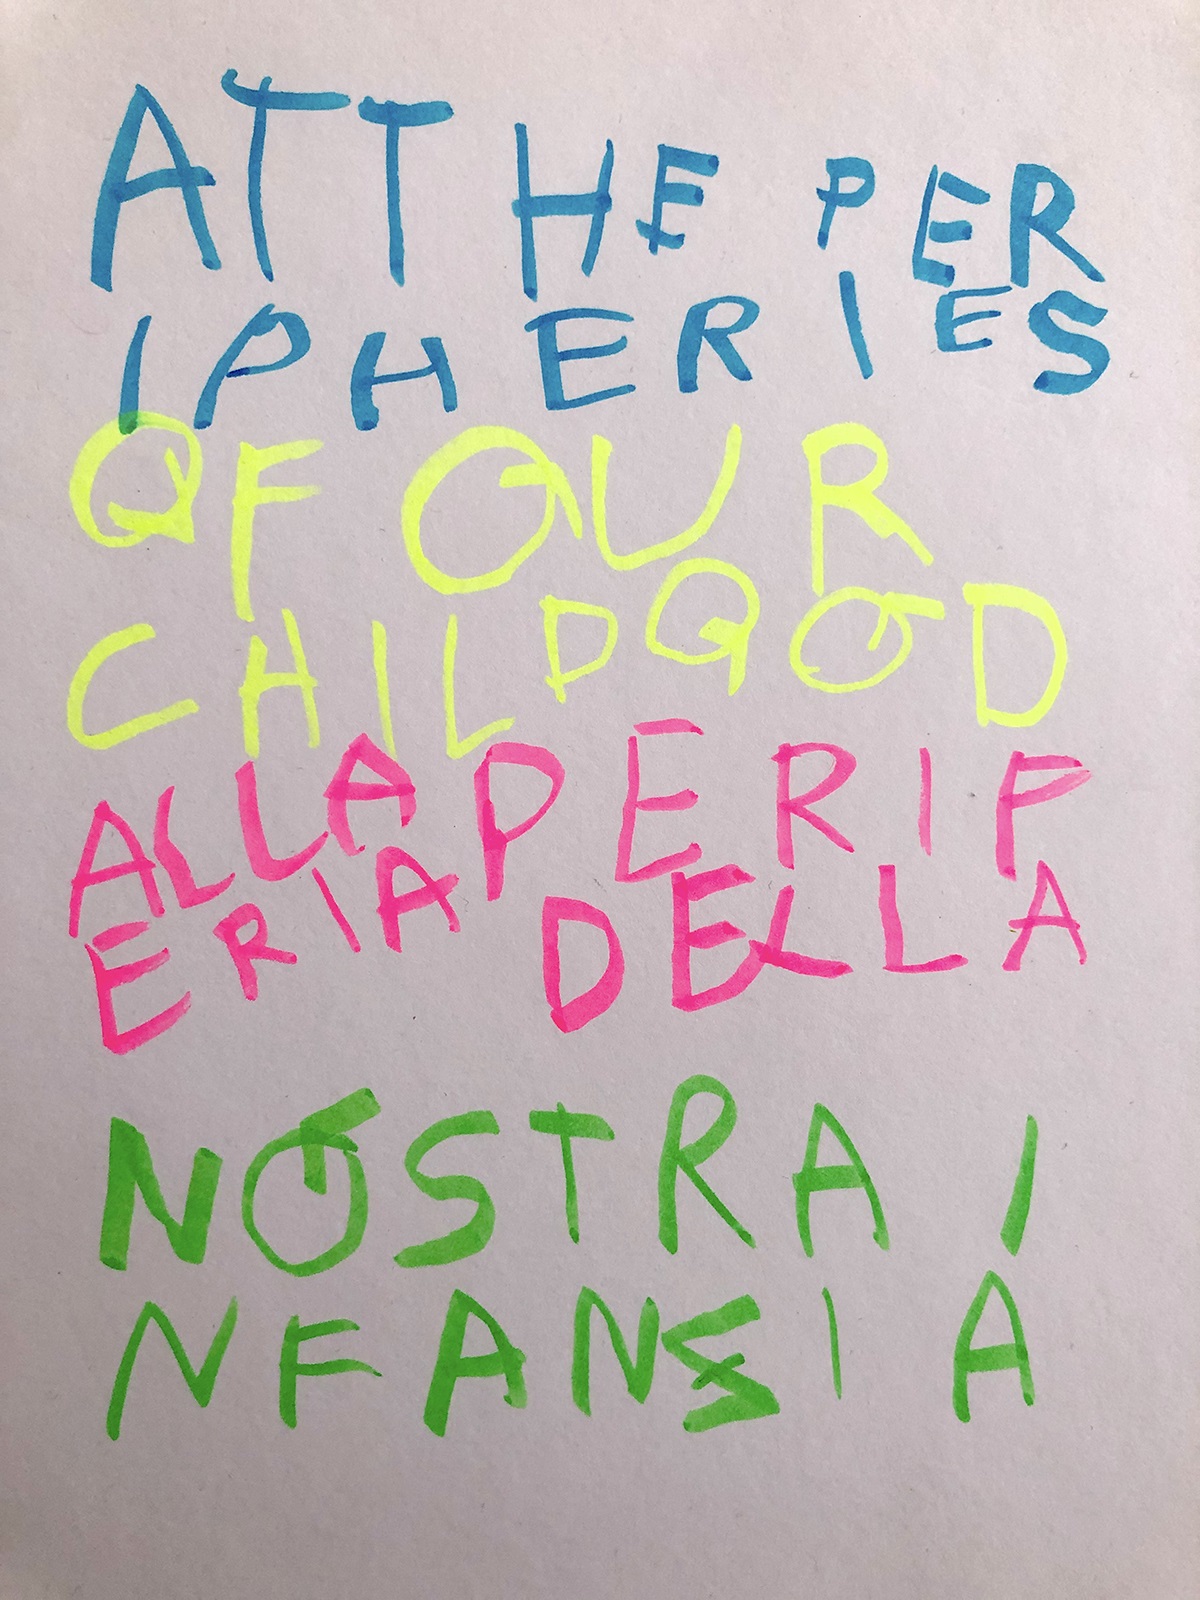 ATT HE PER
IPHERIES
OF OUR
CHILDOOD
ALLA PERIP
ERIA DELLA
NOSTRA I
NFANZIA